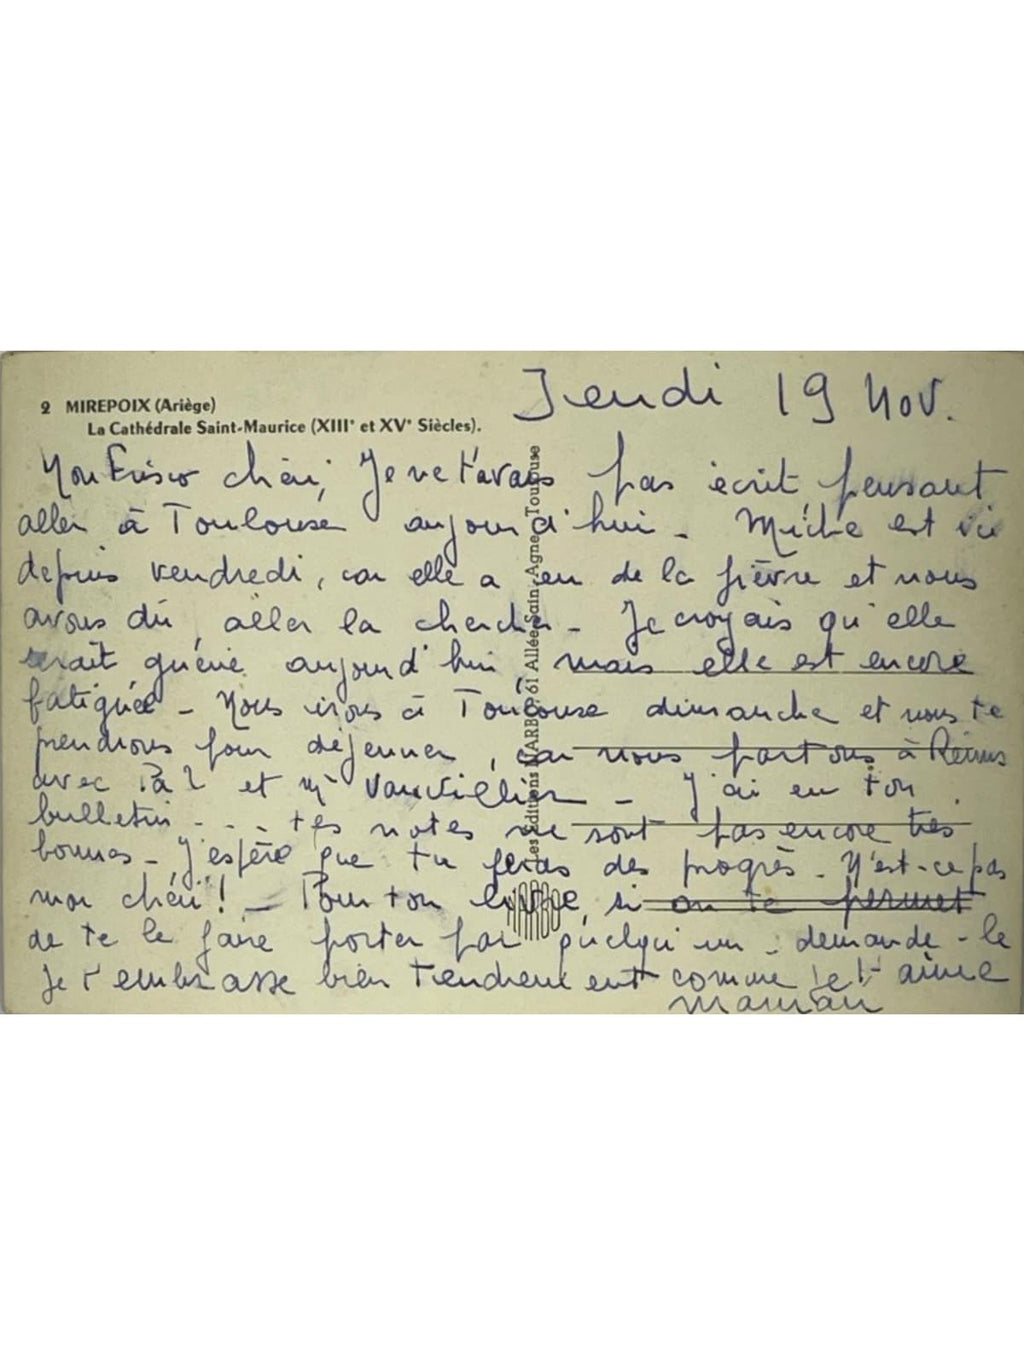 2 MIREPOIX (Ariège)
La Cathédrale Saint-Maurice (XIIIe et XVe Siècles).
Jeudi 19 Nov.
Mon chéri, Je ne t'avais pas écrit pensant
aller à Toulouse aujourd'hui - Miche est ici
depuis vendredi, car elle a eu de la fièvre et nous
avons dû aller la chercher - Je croyais qu'elle
serait guérie aujourd'hui mais elle est encore
fatiguée - Nous irons à Toulouse dimanche et nous te
prendrons pour déjeuner, car nous partons à Reims
avec et Vauvillier - J'ai eu ton
bulletin - - - tes notes ne sont pas encore très
bonnes - J'espère que tu feras des progrès - N'est-ce pas
mon chéri ! - Pour ton livre, si on te permet
de te le faire porter par quelqu'un - demande - le
Je t'embrasse bien tendrement comme je t'aime
maman
Les Editions NARBO 61 Allée Saint-Agne Toulouse